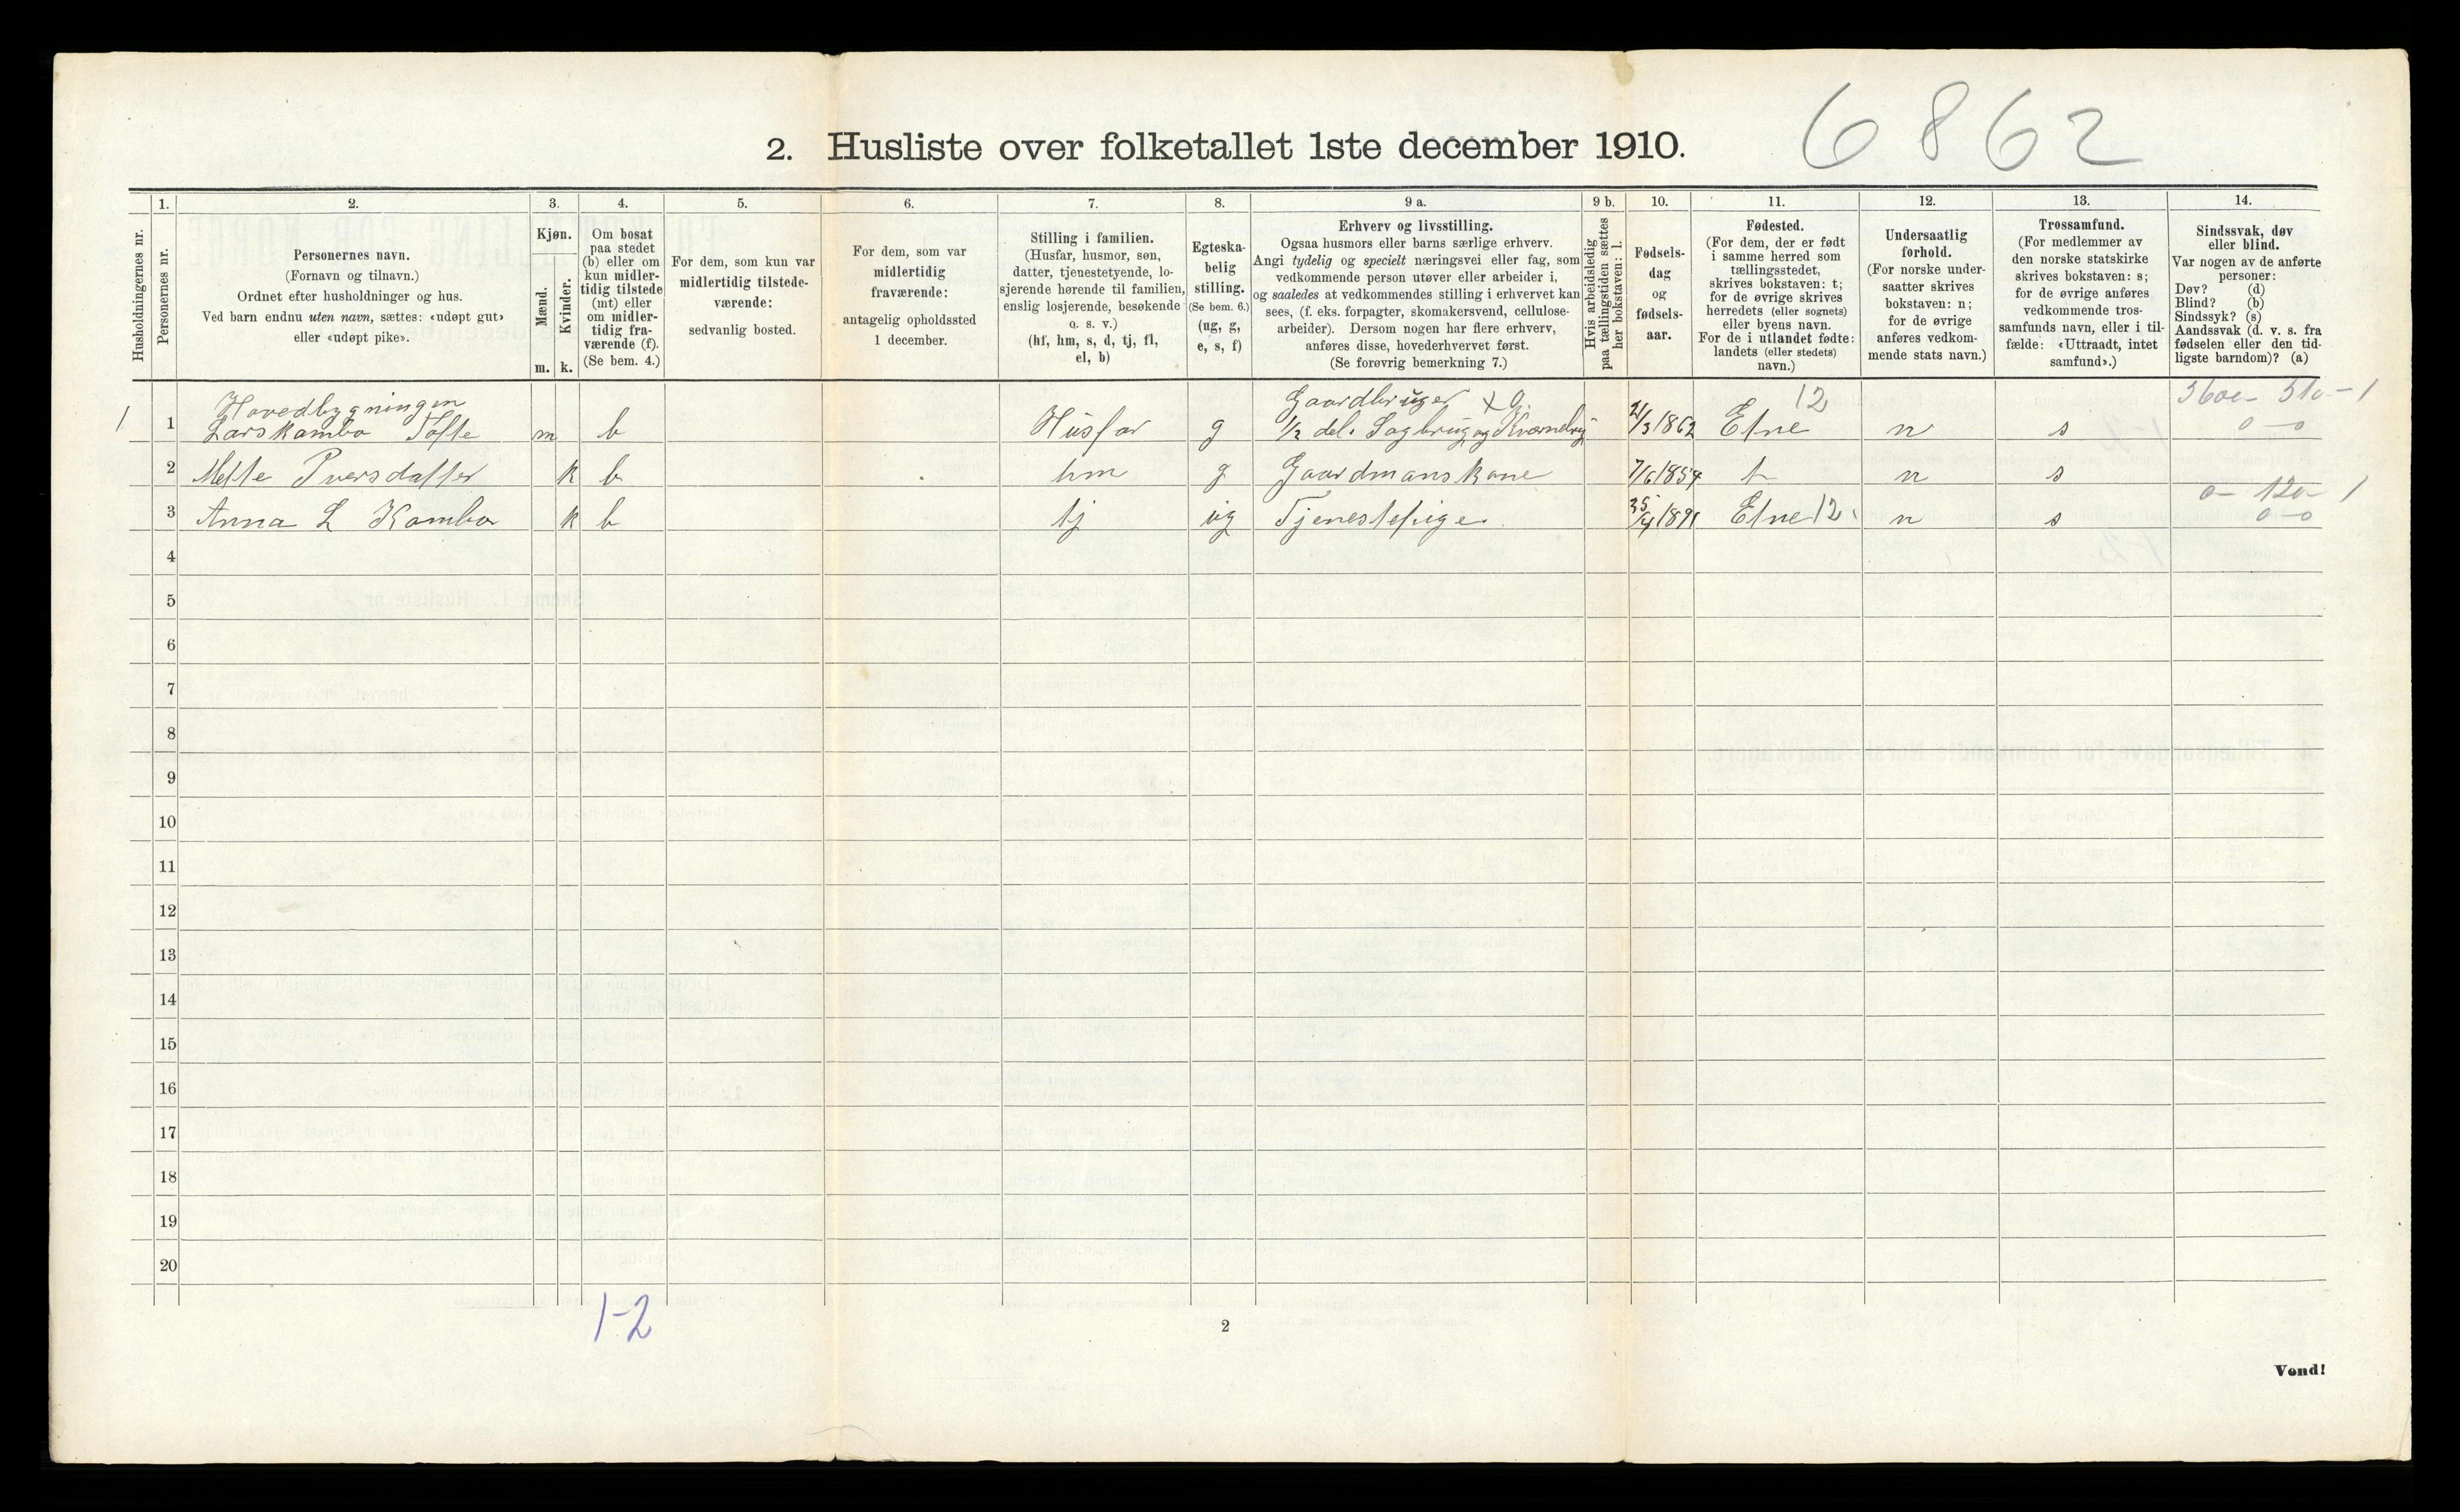 6862
2. Husliste over folketallet 1ste december 1910.
Husholdningernes nr.
1.
Personernes nr.
2.
Personernes navn.
(Fornavn og tilnavn.)
Ordnet efter husholdninger og hus.
Ved barn endnu uten navn, sættes: «udøpt gut»
eller «udøpt pike».
3.
Kjøn.
Mænd.
Kvinder.
m. k.
4.
Om bosat
paa stedet
(b) eller om
kun midler-
tidig tilstede
(mt) eller
om midler-
tidig fra-
værende (f).
(Se bem. 4.)
5.
For dem, som kun var
midlertidig tilstede-
værende:
sedvanlig bosted.
6.
For dem, som var
midlertidig
fraværende:
antagelig opholdssted
1 december.
7.
Stilling i familien.
(Husfar, husmor, søn,
datter, tjenestetyende, lo-
sjerende hørende til familien,
enslig losjerende, besøkende
o. s. v.)
(hf, hm, s, d, tj, fl,
el, b)
8.
Egteska-
belig
stilling.
(Se bem. 6.)
(ug, g,
e, s, f)
9 a.
Erhverv og livsstilling.
Ogsaa husmors eller barns særlige erhverv.
Angi tydelig og specielt næringsvei eller fag, som
vedkommende person utøver eller arbeider i,
og saaledes at vedkommendes stilling i erhvervet kan
sees, (f. eks. forpagter, skomakersvend, cellulose-
arbeider). Dersom nogen har flere erhverv,
anføres disse, hovederhvervet først.
(Se forøvrig bemerkning 7.)
9 b.
Hvis arbeidsledig
paa tællingstiden sættes
her bokstaven: l.
10.
Fødsels-
dag
og
fødsels-
aar.
11.
Fødested.
(For dem, der er født
i samme herred som
tællingsstedet,
skrives bokstaven: t;
for de øvrige skrives
herredets (eller sognets)
eller byens navn.
For de i utlandet fødte:
landets (eller stedets)
navn.)
12.
Undersaatlig
forhold.
(For norske under-
saatter skrives
bokstaven: n;
for de øvrige
anføres vedkom-
mende stats navn.)
13.
Trossamfund.
(For medlemmer av
den norske statskirke
skrives bokstaven: s;
for de øvrige anføres
vedkommende tros-
samfunds navn, eller i til-
fælde: «Uttraadt, intet
samfund».)
14.
Sindssvak, døv
eller blind.
Var nogen av de anførte
personer:
Døv? (d)
Blind? (b)
Sindssyk? (s)
Aandssvak (d. v. s. fra
fødselen eller den tid-
ligste barndom)? (a)
Hovedbygningen Gaardbruger 12
1 1 Lars Kambo Tofte m b Husfar g 1/2 del. Sagbrug og Kværnebrug 21/3 1862 Etne n s 0-0
2 Mette Iversdatter k b hm g Gaardmanskone 7/6 1854 t n s
0- 120- 1
3 Anna L Kambo k b tj ug Tjenestepige. 25/4 1891 Etne 12. n s 0-0
4
5
6
7
8
9
10
11
12
13
14
15
16
17
18
19
20
1-2
2
Vend!